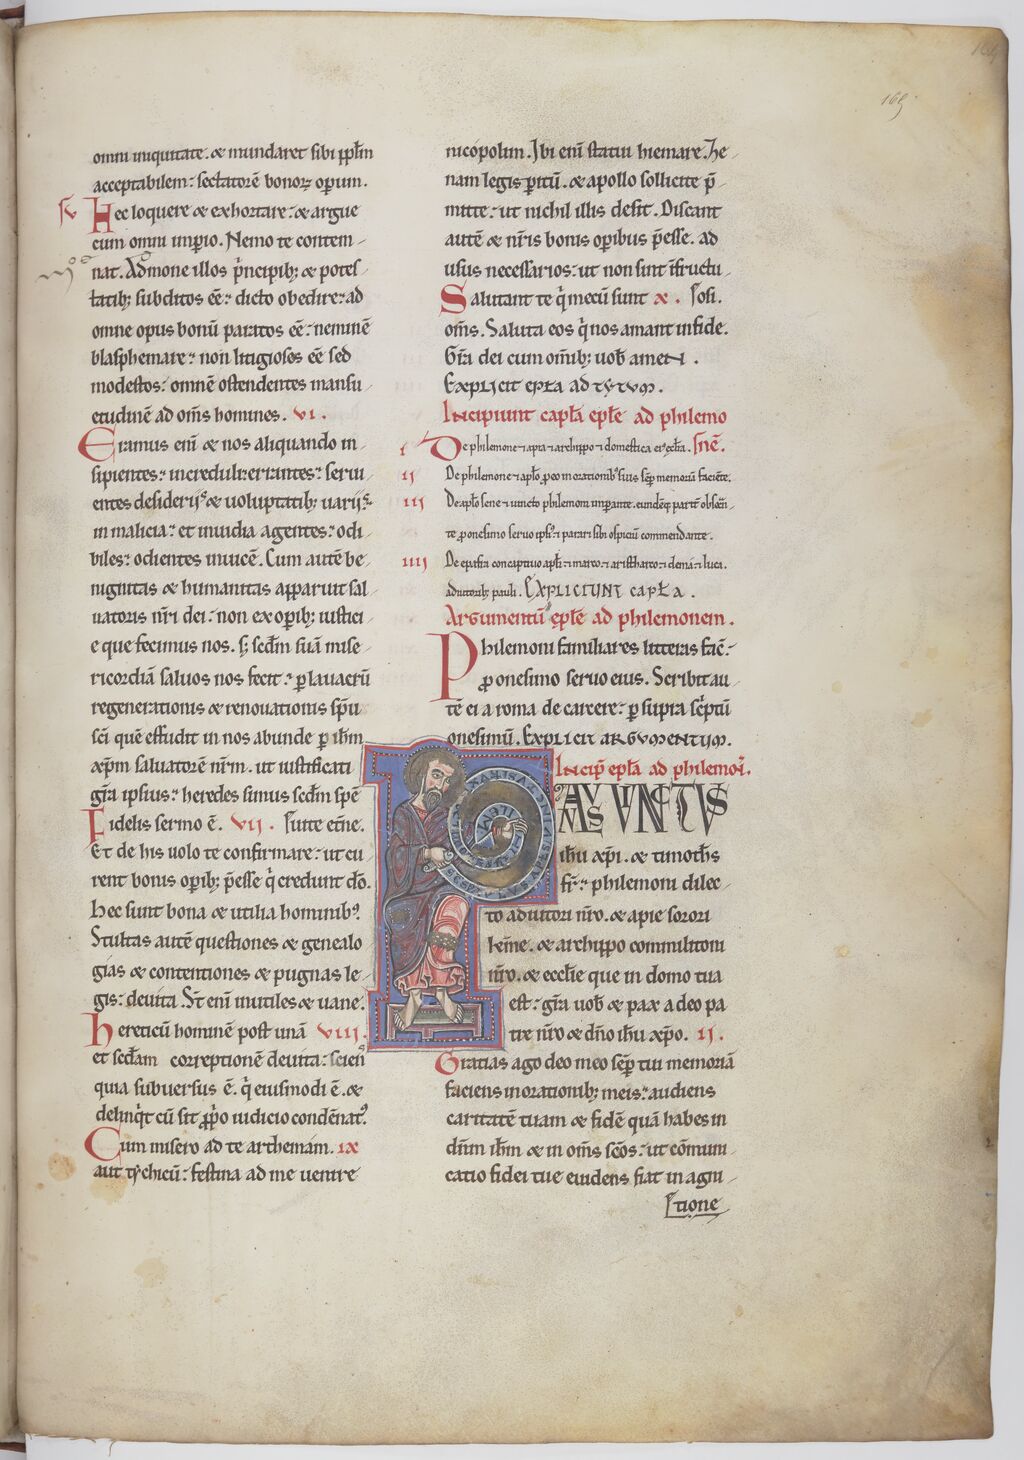 164
165
omni iniquitate. & mundaret sibi pplm̄
acceptabilem: sectatorē bonoꝝ opum.
Hec loquere & exhortare: & argue
cum omni impio. Nemo te contem-
nat. Admone illos p̄ncipib; & potes-
tatib; subditos eē: dicto obedire: ad
omne opus bonū paratos eē: neminē
blasphemare: non litigiosos eē sed
modestos: omnē ostendentes mansu-
etudinē ad om̄s homines. VI.
Eramus eni & nos aliquando in-
sipientes: increduli: errantes: serui-
entes desideriis & uoluptatib; uariis:
in malicia: et inuidia agentes: odi-
biles: odientes inuicē. Cum autē be-
nignitas & humanitas apparuit sal-
uatoris nr̄i dei: non ex opib; iusticі-
e que fecimus nos. s; scdm̄ suā mise-
ricordiā saluos nos fecit: p lauacrū
regenerationis & renouationis spū
sci quē effudit in nos abunde p ihm̄
xpm̄ saluatorē nr̄m. ut iustificati
gr̄a ipsius: heredes simus scdm̄ spē
Fidelis sermo ē. VII. uite et̄ne.
Et de his uolo te confirmare: ut cu-
rent bonis opib; p̄esse q̄ credunt dō.
Hec sunt bona & utilia hominib'.
Stultas autē questiones & genealo-
gias & contentiones & pugnas le-
gis: deuita. S̄t eni inutiles & uane.
Hereticū hominē post unā VIII.
et scdam correptionē deuita: scien'
quia subuersus ē. q̄ eiusmodi ē. &
delinq̄t cū sit pprio iudicio condēnat'.
Cum misero ad te arthemam. IX
aut tychicū: festina ad me uenire
nicopolim. Ibi eni statui hiemare. Ze-
nam legis pitū. & apollo sollicite p̄-
mitte: ut nichil illis desit. Discant
autē & nr̄is bonis opibus p̄esse. ad
usus necessarios: ut non sint īfructu-
Salutant te q̄ mecū sunt X. osi.
om̄s. Saluta eos q̄ nos amant in fide.
Gr̄a dei cum om̄ib; uob amen.
Explicit epła ad tytum.
Incipiunt capła epłe ad philemo-
I De philemone & apia & archippo & domestica ei' ecłia. nē.
II De philemone & apło p eo in orationib' suis sēp memoriā faciēte.
III De apło sene & uincto philemoni impante.
te p onesimo seruo & parari sibi ospiciū commendante.
IIII De epafra concaptiuo apłi & marco & aristharco & demā & luca.
adiutorib; pauli. Expliciunt capła.
Argumentū epłe ad philemonem.
Philemoni familiares litteras fac̄:
p onesimo seruo eius. Scribit au-
tē ei a roma de carcere: p supra sc̄ptū
onesimū. Explicit argumentum.
Incip epła ad philemoī.
PAULUS VINCTUS
ihu xpi. & timoth's
fr̄: philemoni dilec-
to adiutori nr̄o. & apie sorori
kme. & archippo commilitoni
nr̄o. & ecclie que in domo tua
est: gr̄a uob & pax a deo pa-
tre nr̄o & dn̄o ihu xpo. II.
Gratias ago deo meo sēp tui memoriā
faciens in orationib; meis: audiens
caritatē tuam & fidē quā habes in
dn̄m ihm̄ & in om̄s sc̄os: ut cōmuni-
catio fidei tue euidens fiat in agni-
tione